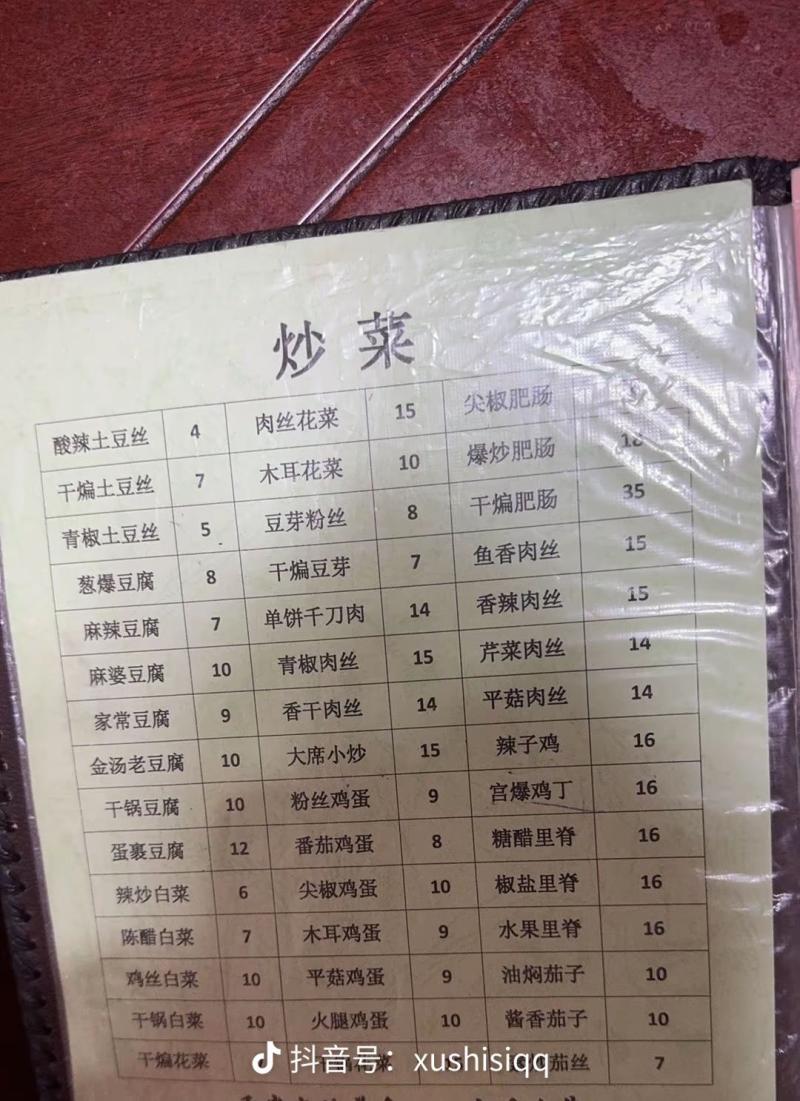 炒菜
酸辣土豆丝 4 肉丝花菜 15 尖椒肥肠
干煸土豆丝 7 木耳花菜 10 爆炒肥肠 18
青椒土豆丝 5 豆芽粉丝 8 干煸肥肠 35
葱爆豆腐 8 干煸豆芽 7 鱼香肉丝 15
麻辣豆腐 7 单饼千刀肉 14 香辣肉丝 15
麻婆豆腐 10 青椒肉丝 15 芹菜肉丝 14
家常豆腐 9 香干肉丝 14 平菇肉丝 14
金汤老豆腐 10 大席小炒 15 辣子鸡 16
干锅豆腐 10 粉丝鸡蛋 9 宫爆鸡丁 16
蛋裹豆腐 12 番茄鸡蛋 8 糖醋里脊 16
辣炒白菜 6 尖椒鸡蛋 10 椒盐里脊 16
陈醋白菜 7 木耳鸡蛋 9 水果里脊 16
鸡丝白菜 10 平菇鸡蛋 9 油焖茄子 10
干锅白菜 10 火腿鸡蛋 10 酱香茄子 10
干煸花菜 茄丝 7
抖音号：xushisiqq